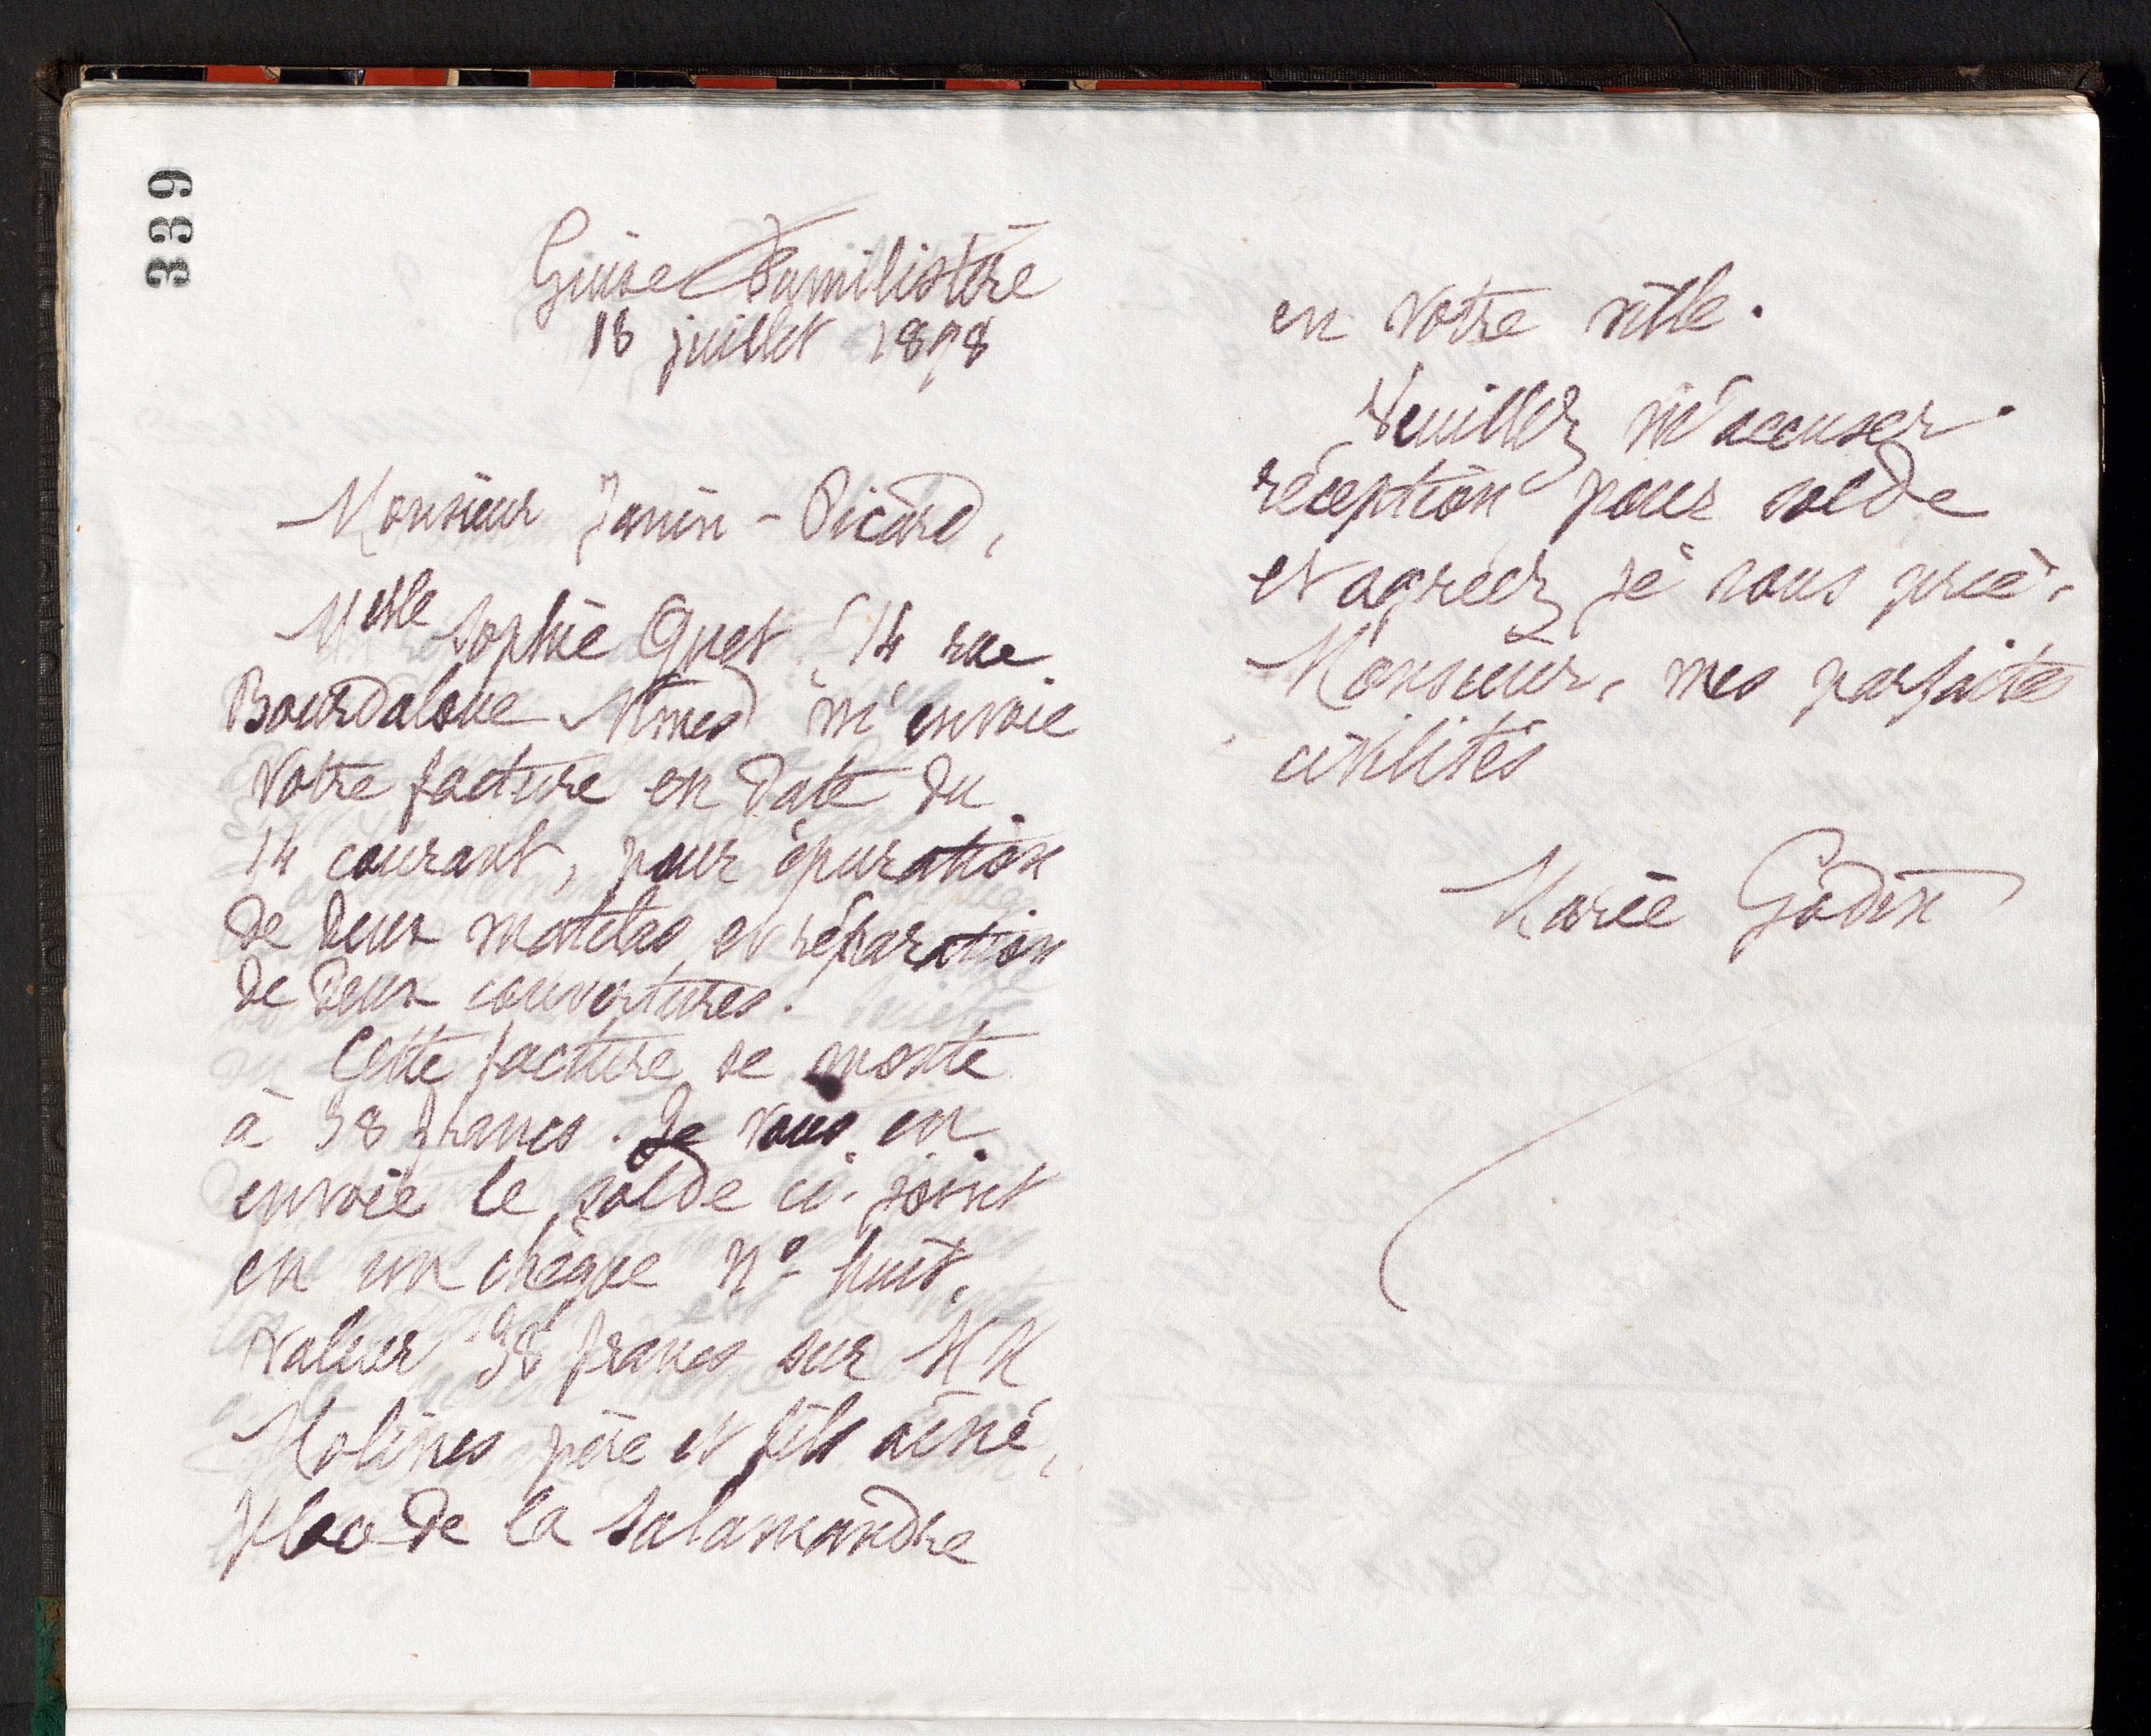 339
Guise Familistère
18 juillet 1898
Monsieur Janin-Picard,
Melle Sophie Quet, 14 rue
Bourdaloue Nîmes m'envoie
votre facture en date du
14 courant, pour épuration
de deux matelas et réparation
de deux couvertures.
Cette facture se monte
à 38 francs. Je vous en
envoie le solde ci-joint
en un chèque No huit,
valeur 38 francs sur MM
Molines père et fils aîné,
place de la Salamandre
en votre ville.
Veuillez m'accuser
réception pour solde
et agréez, je vous prie,
Monsieur, mes parfaites
civilités
Marie Godin